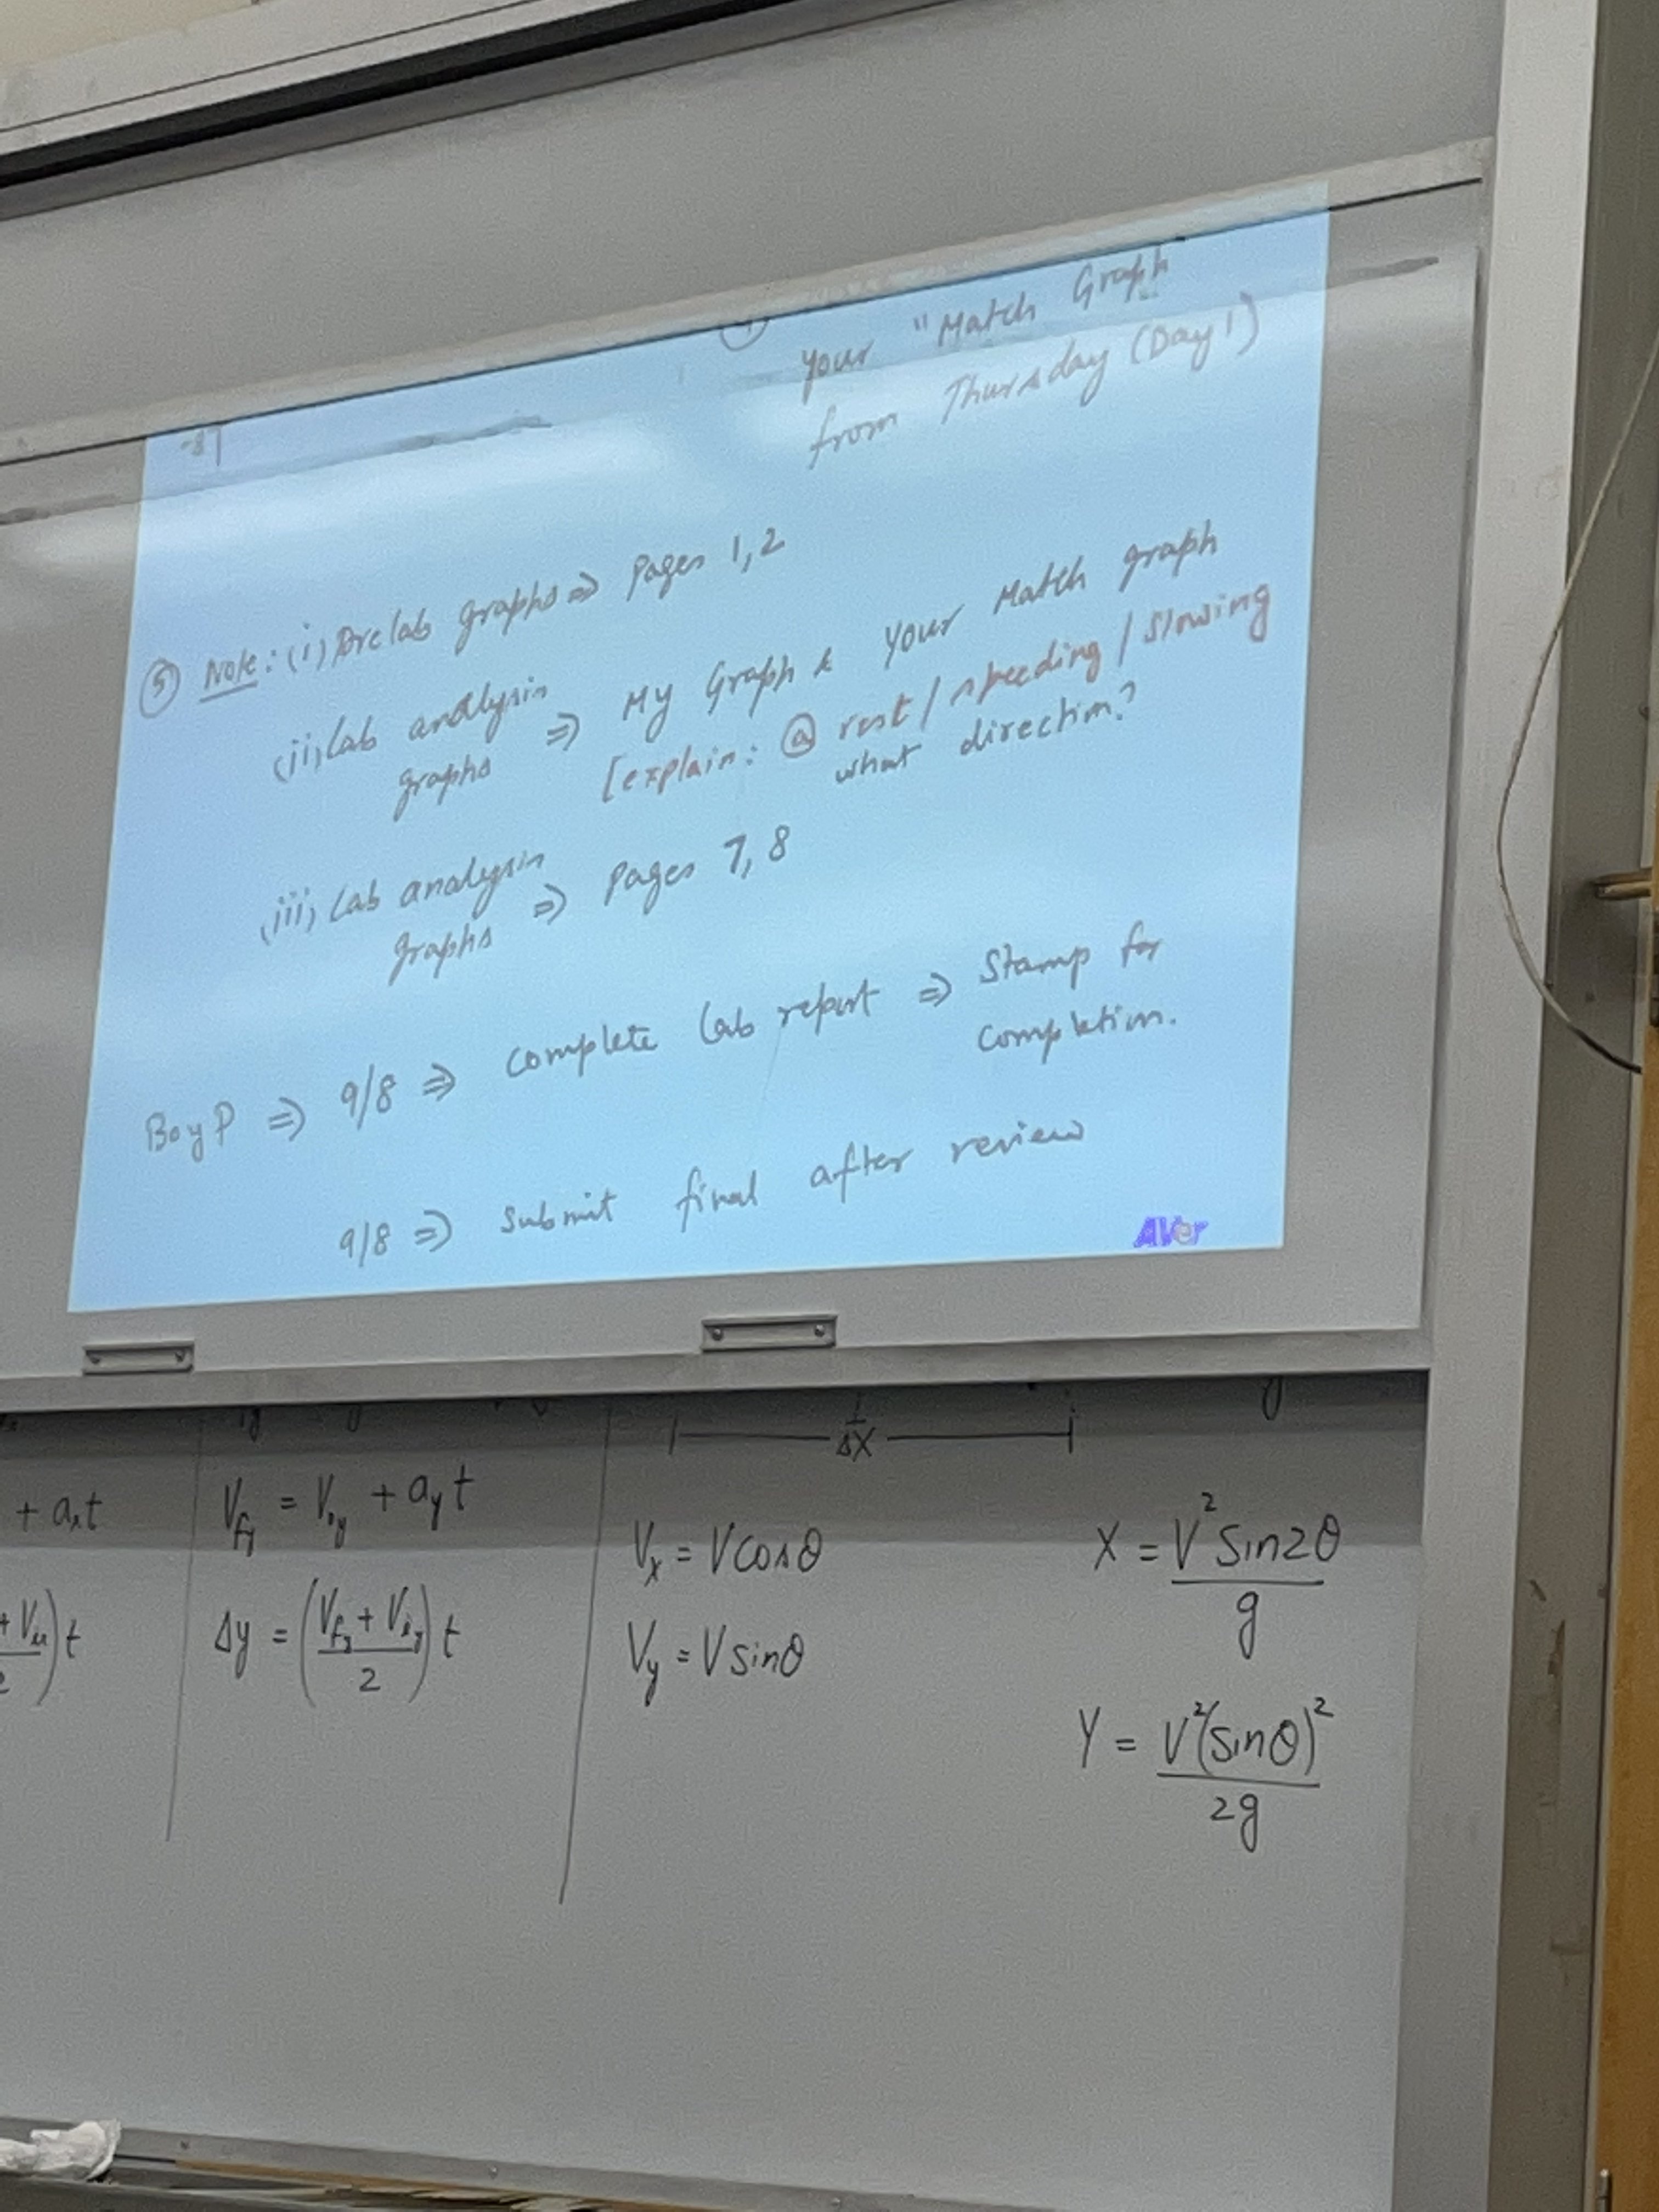 your "Match Graph"
from Thursday (Day 1)
-8
⑤ Note: (i) Prelab graphs ⇒ Pages 1, 2
(ii) Lab analysis graphs ⇒ My Graph & Your Match graph
[explain: @ rest / speeding / slowing
what direction?
(iii) Lab analysis graphs ⇒ Pages 7, 8
BoyP ⇒ 9/8 ⇒ complete Lab report ⇒ Stamp for
completion.
9/8 ⇒ submit final after review
AVer
ΔX
+ axt
Vfy = Viy + ay t
Vx = V cosθ
X = V² Sin2θ / g
Δy = (Vfy + Viy / 2) t
Vy = V sinθ
Y = V²(sinθ)² / 2g